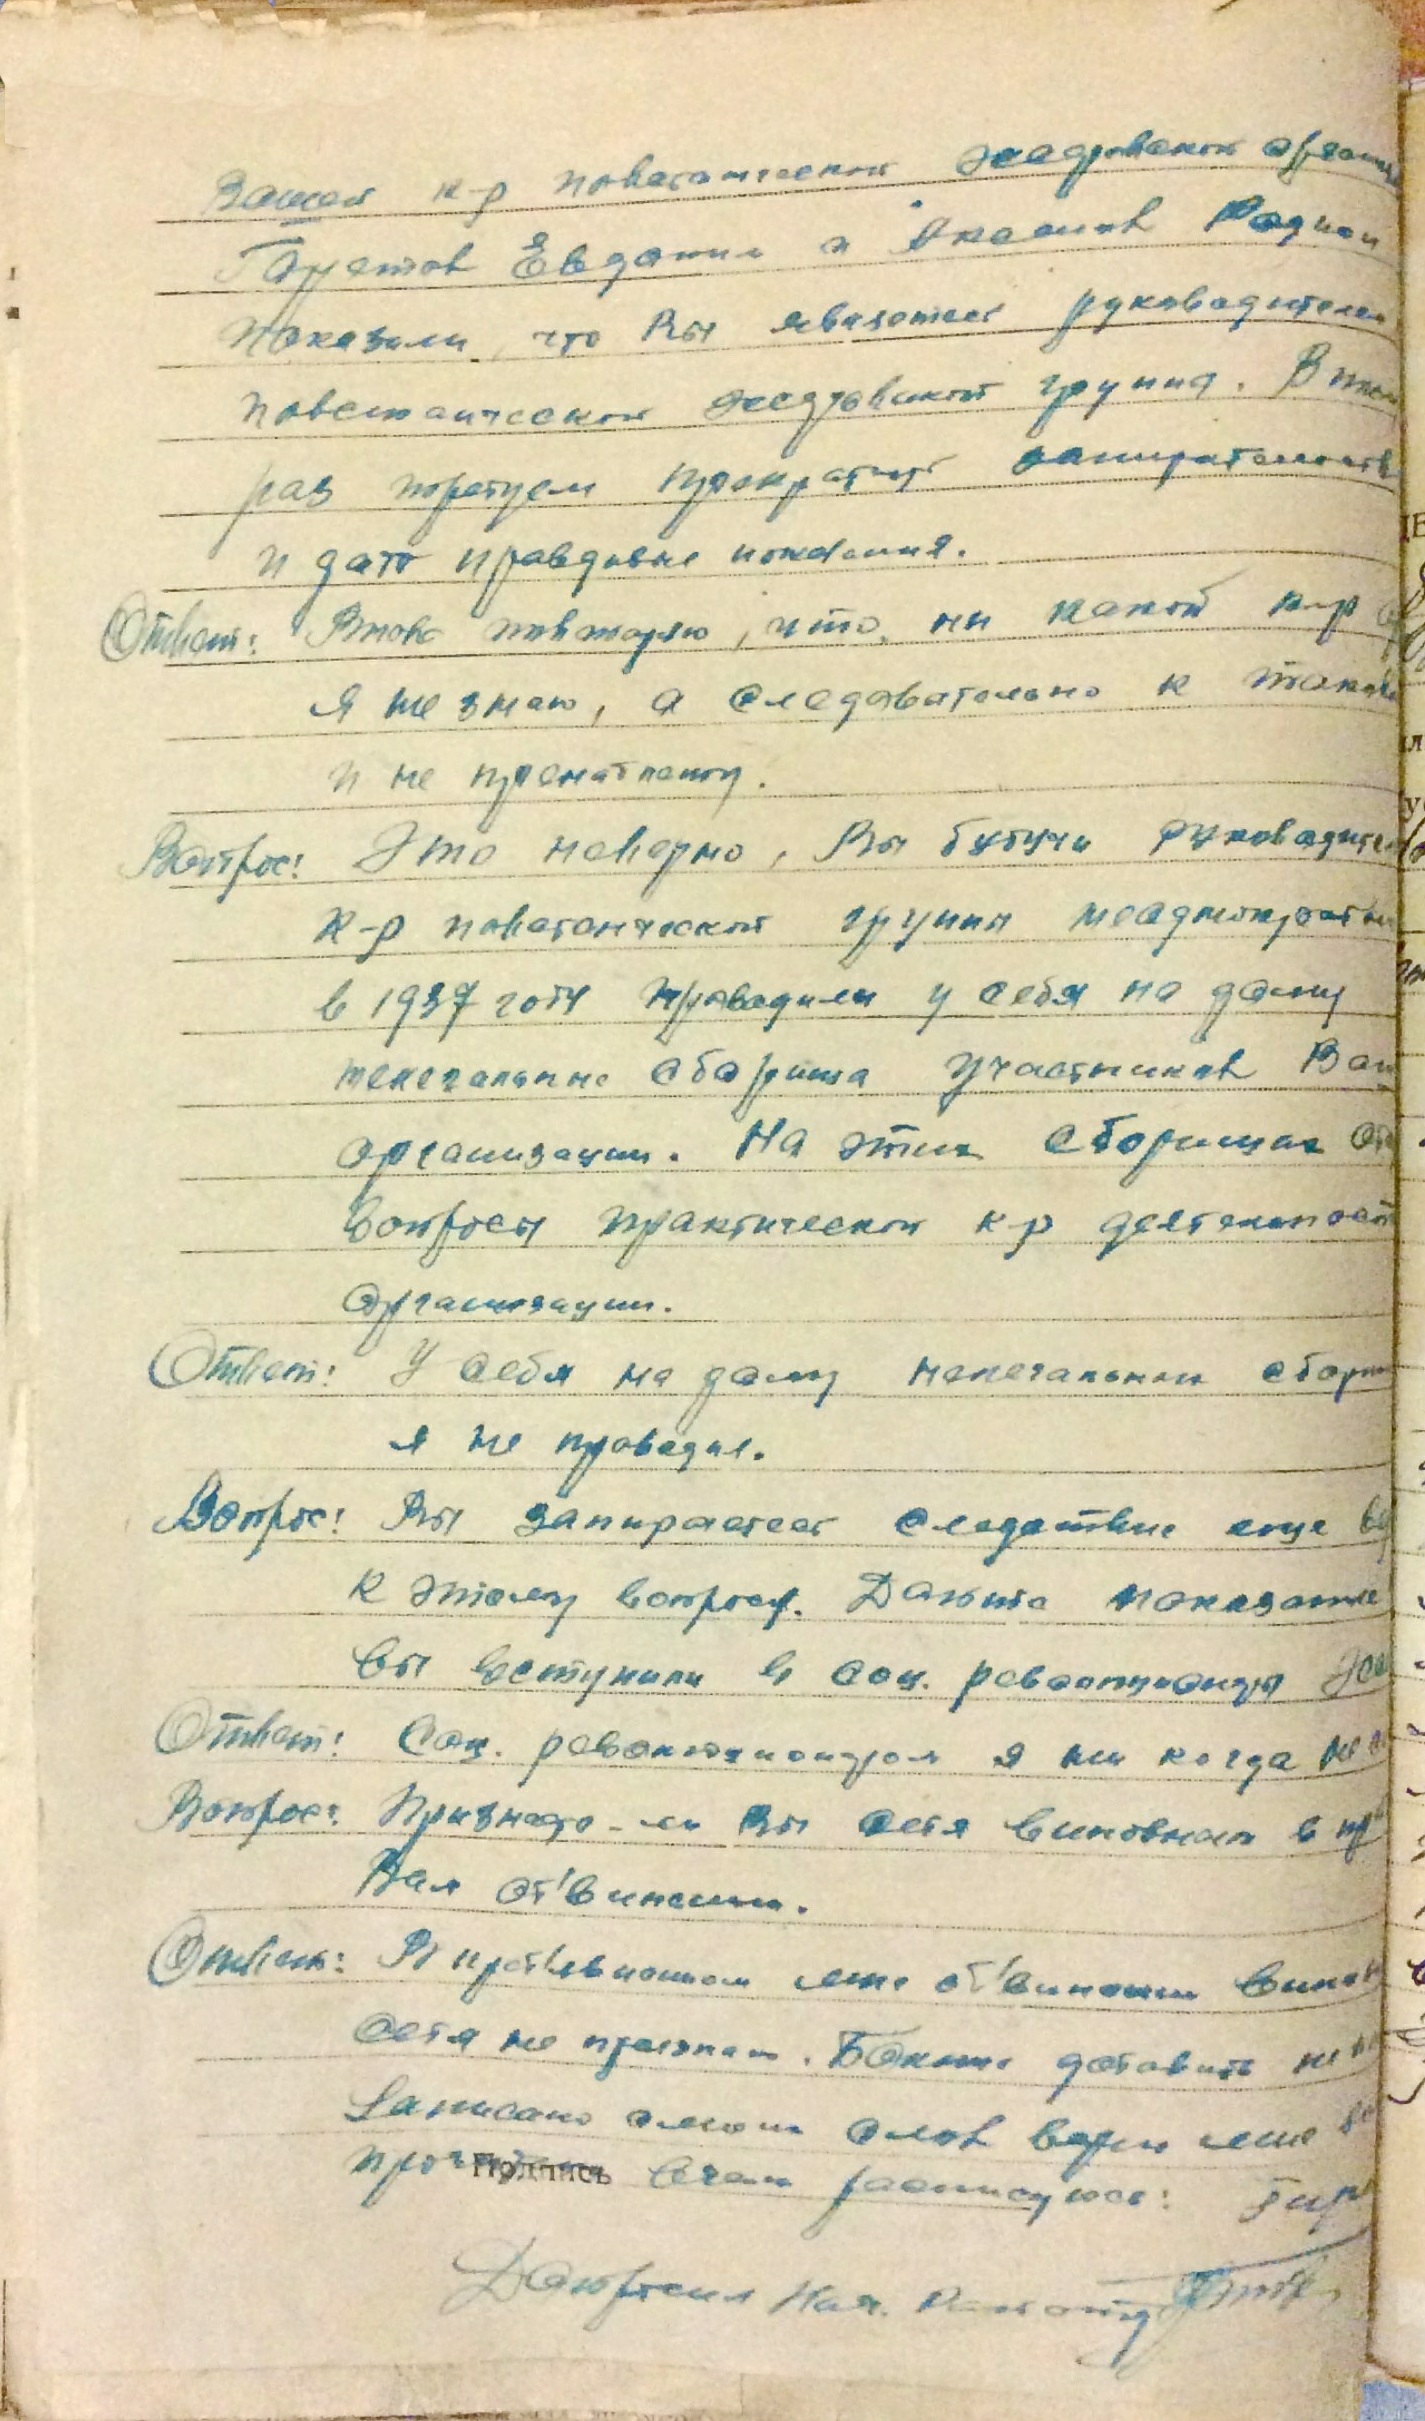 Вашей к-р повстанческой эсеровской организ
Евдоким и Родион
показали, что Вы являетесь руководителем
повстанческой эсеровской группы. В
раз требуем прекратить запирательств
и дать правдивые показания.
Ответ: Вновь повторяю, что ни какой к-р
я не знаю, а следовательно к такой
и не пренадлежу.
Вопрос: Это неверно, Вы будучи руководител
к-р повстанческой группы неоднократно
в 1937 году проводили у себя на дому
нелегальные сборища участников Ваш
организации. На этих сборищах об
вопросы практической к-р деятельност
организации.
Ответ: У себя на дому нелегальных сборищ
я не проводил.
Вопрос: Вы запираетесь следствие еще
к этому вопросу. Дайте показание
Вы вступили в соц. революционную
Ответ: Соц. революционером я ни когда не
Вопрос: Признаете-ли Вы себя виновным в пр
Вам об'винении.
Ответ: В пред'явленном мне об'винении винов
себя не признаю. Больше добавить не
Записано с моих слов верно мне
проч Подпись в чем расписуюсь:
Допросил Нач.